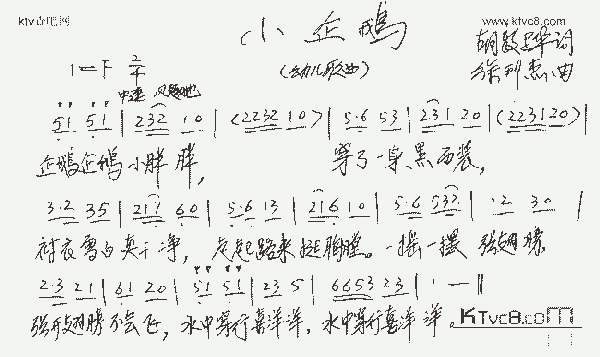 ktv吉吧网
www.ktvc8.com
小企鹅
(幼儿歌曲)
胡敦骅词
徐邦杰曲
1=F 2/4
中速 风趣地
51 51 | 232 10 | (2232 10) | 5·6 53 | 231 20 | (223120) |
企鹅企鹅小胖胖, 穿了一身黑西装,
3·2 35 | 217 60 | 5·6 13 | 216 10 | 5·6 532 | ·2 30 |
衬衣雪白真干净, 走起路来挺胸膛。一摇一摆 张翅膀
2·3 21 | 61 20 | 51 51 | 23 5 | 6653 23 | 1 — ‖
张开翅膀不会飞, 水中穿行喜洋洋, 水中穿行喜洋洋。
KTvc8.com